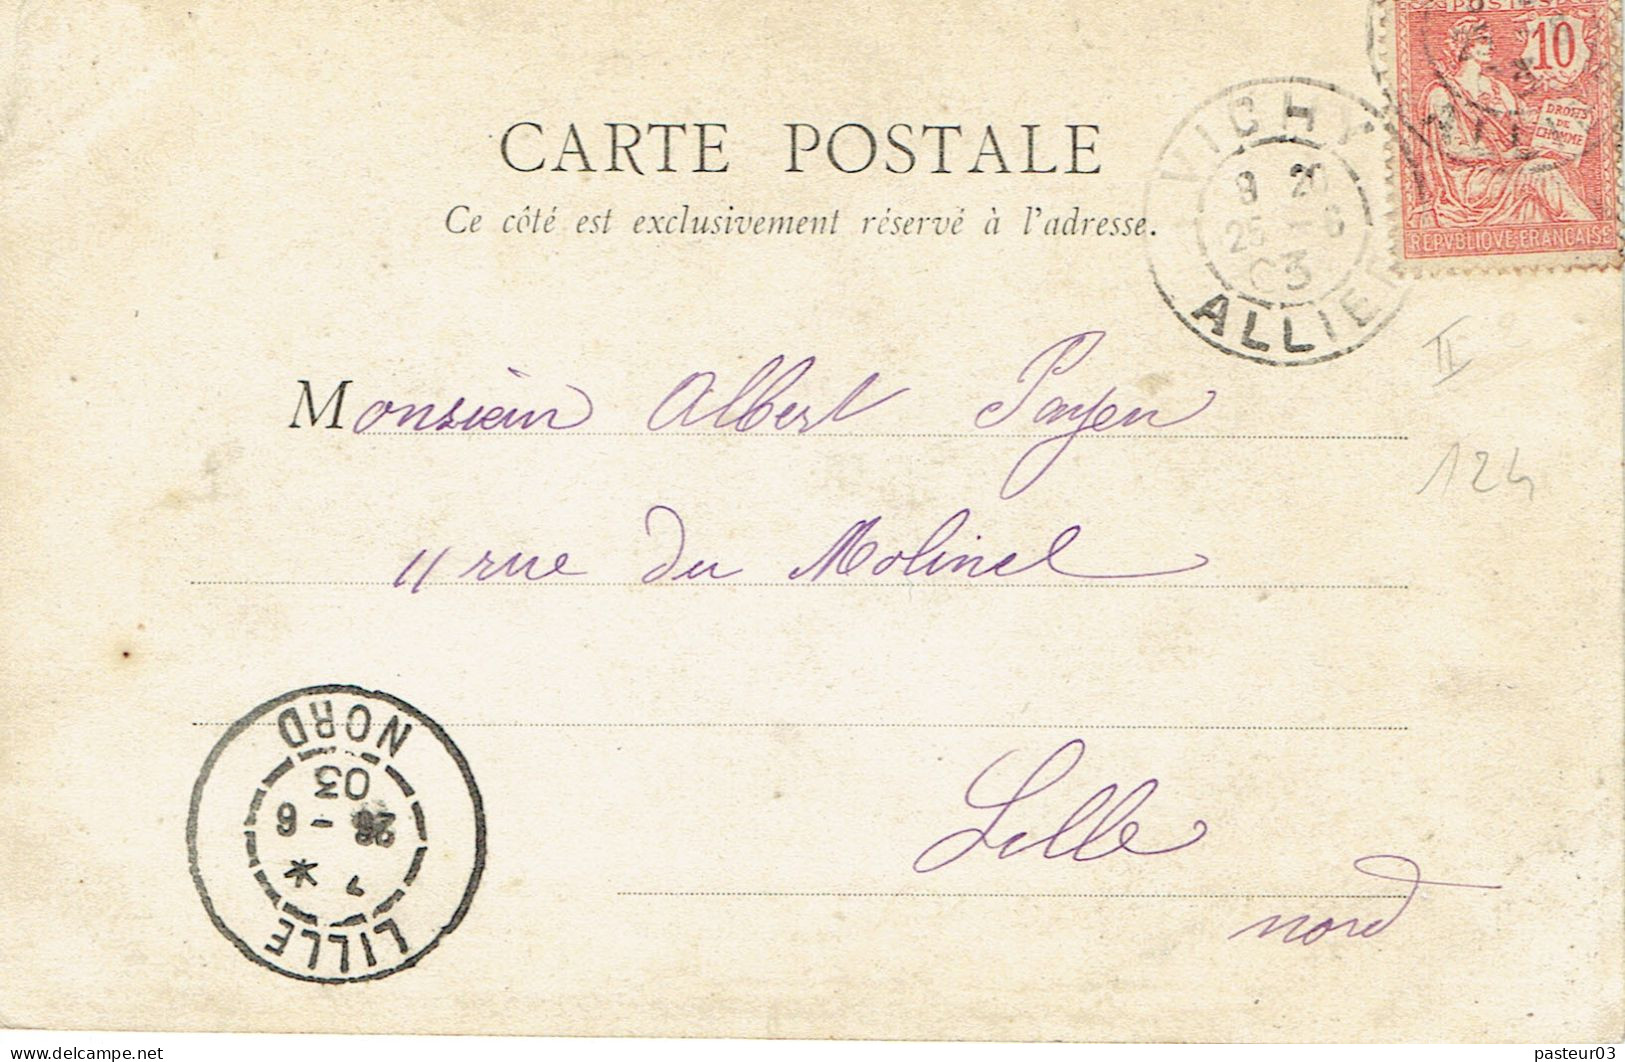 POSTES
10
DROITS
DE
L'HOMME
REPVBLIQVE FRANCAISE
VICHY
9 20
25 - 6
03
ALLIER
CARTE POSTALE
Ce côté est exclusivement réservé à l'adresse.
II
Monsieur Albert Payen
124
11 rue du Molinel
Lille
nord
LILLE
26 - 6
03
NORD
delcampe.net
pasteur03